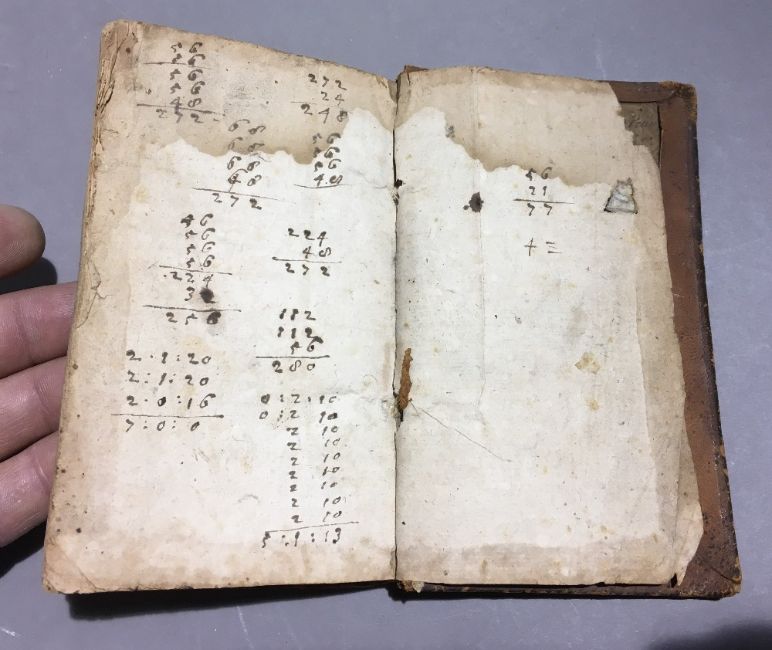 56
56
56
56
48
272
272
24
248
68
68
68
68
272
56
56
56
48
56
56
56
56
224
3
256
224
48
272
112
112
56
280
2:1:20
2:1:20
2:0:16
7:0:0
0:2:10
0:2 10
2 10
2 10
2 10
2 10
2 10
2 10
2 10
5:1:13
56
21
77
4=